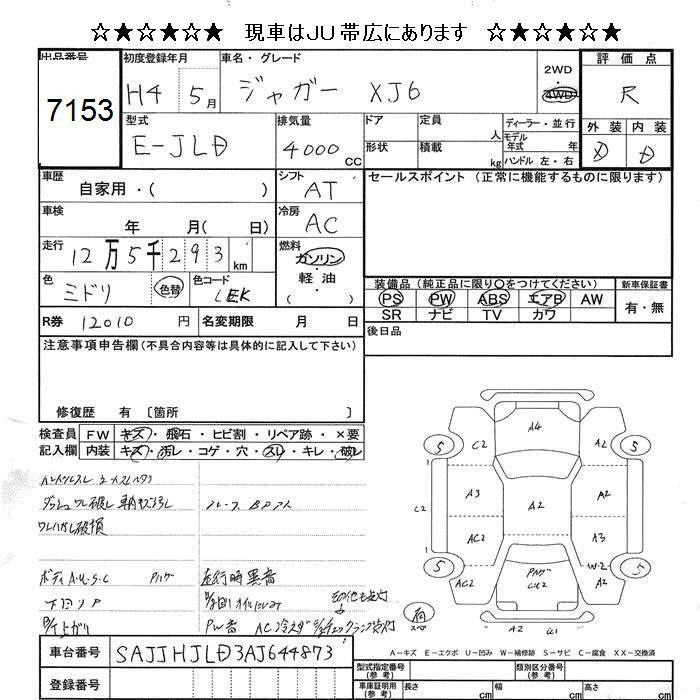 ☆★☆★☆★ 現車はJU帯広にあります ☆★☆★☆★
出品番号 初度登録年月 車名・グレード 2WD 評価点
7153 H4 5月 ジャガー XJ6 4WD R
型式 排気量 ドア 定員 人 ディーラー・並行 外装 内装
E-JLD 4000CC 形状 積載 kg モデル年式 年 ハンドル 左・右 D D
車歴 シフト セールスポイント (正常に機能するものに限ります)
自家用・( ) AT
車検 冷房
年 月( 日) AC
走行 燃料
12万5千293km ガソリン・
色 色コード 軽・油
ミドリ 色替 LEK ( ) 装備品(純正品に限り○をつけてください) 新車保証書
PS PW ABS エアB AW 有・無
R券 12010円 名変期限 月 日 SR ナビ TV カワ
注意事項申告欄(不具合内容等は具体的に記入して下さい) 後日品
修復歴 有〔箇所 〕
検査員 FW キズ・飛石・ヒビ割・リペア跡・×要
記入欄 内装 キズ・汚レ・コゲ・穴・スレ・キレ・破レ
A4
C2 A2
5 5
A3 A2 A2
C2
AC2 A3
W-2
5 5
AC2 A2
A2
ボディA・U・S・C
走行時異音
下回りサビ
PW音 AC冷えず
A-キズ E-エクボ U-凹み W-補修跡 S-サビ C-腐食 XX-交換済
車台番号 SAJJHJLD3AJ644873 型式指定番号(参考) 類別区分番号(参考)
登録番号 車庫証明用(参考) 長さ cm 幅 cm 高さ cm